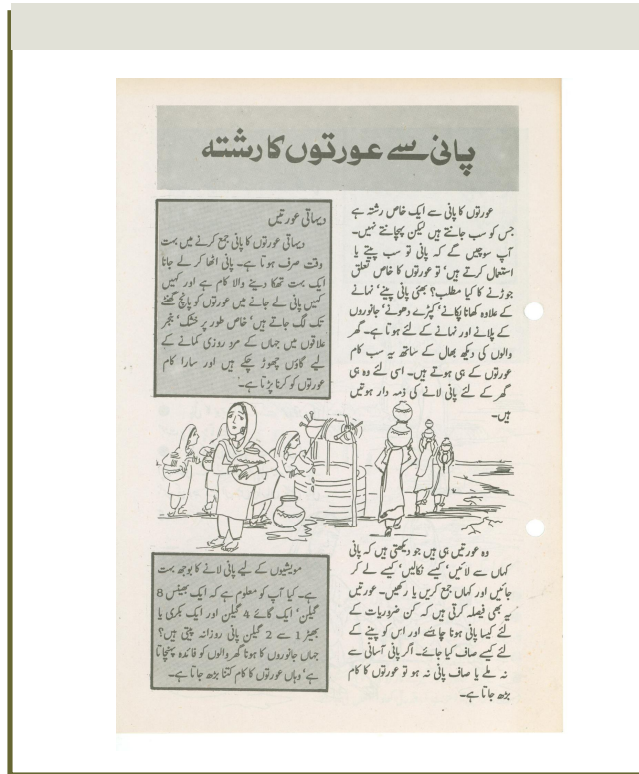 پانی سے عورتوں کا رشتہ
عورتوں کا پانی سے ایک خاص رشتہ ہے
جس کو سب جانتے ہیں لیکن پہچانتے نہیں۔
آپ سوچیں گے کہ پانی تو سب پیتے یا
استعمال کرتے ہیں' تو عورتوں کا خاص تعلق
جوڑنے کا کیا مطلب؟ بھئی پانی پینے' نہانے
کے علاوہ کھانا پکانے' کپڑے دھونے' جانوروں
کے پلانے اور نہانے کے لئے ہوتا ہے۔ گھر
والوں کی دیکھ بھال کے ساتھ یہ سب کام
عورتوں کے ہی ہوتے ہیں۔ اسی لئے وہ ہی
گھر کے لئے پانی لانے کی ذمہ دار ہوتیں
ہیں۔
دیہاتی عورتیں
دیہاتی عورتوں کا پانی جمع کرنے میں بہت
وقت صرف ہوتا ہے۔ پانی اٹھا کر لے جانا
ایک بہت تھکا دینے والا کام ہے اور کہیں
کہیں پانی لے جانے میں عورتوں کو پانچ گھنٹے
تک لگ جاتے ہیں' خاص طور پر خشک' بنجر
علاقوں میں جہاں کے مرد روزی کمانے کے
لیے گاؤں چھوڑ چکے ہیں اور سارا کام
عورتوں کو کرنا پڑتا ہے۔
وہ عورتیں ہی ہیں جو دیکھتی ہیں کہ پانی
کہاں سے لائیں' کیسے نکالیں' کیسے لے کر
جائیں اور کہاں جمع کریں یا رکھیں۔ عورتیں
یہ بھی فیصلہ کرتی ہیں کہ کن ضروریات کے
لئے کیسا پانی ہونا چاہئے اور اس کو پینے کے
لئے کیسے صاف کیا جائے۔ اگر پانی آسانی سے
نہ ملے یا صاف پانی نہ ہو تو عورتوں کا کام
بڑھ جاتا ہے۔
مویشیوں کے لیے پانی لانے کا بوجھ بہت
ہے۔ کیا آپ کو معلوم ہے کہ ایک بھینس 8
گیلن' ایک گائے 4 گیلن اور ایک بکری یا
بھیڑ 1 سے 2 گیلن پانی روزانہ پیتی ہیں؟
جہاں جانوروں کا ہونا گھر والوں کو فائدہ پہنچاتا
ہے' وہاں عورتوں کا کام کتنا بڑھ جاتا ہے۔